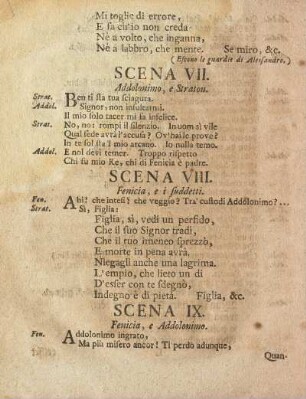 Mi toglie di errore,
E fa ch'io non creda
Nè a volto, che inganna,
Nè a labbro, che mente. Se miro, &c.
(Escono le guardie di Alessandro.)
SCENA VII.
Addolonimo, e Straton.
Strat. Ben ti sta tua sciagura.
Addol. Signor, non insultarmi.
Il mio solo tacer mi fa infelice.
Strat. No, non rompi il silenzio. In uom sì vile
Qual fede avrà l'accusa? Ov'hai le prove?
In te sol sta'l mio arcano. Io nulla temo.
Addol. E nol devi temer. Troppo rispetto
Chi fu mio Re, chi di Fenicia è padre.
SCENA VIII.
Fenicia, e i suddetti.
Fen. Ahi? che intesi? che veggio? Tra' custodi Addolonimo?...
Strat. Sì, Figlia:
Figlia, sì, vedi un perfido,
Che il suo Signor tradì,
Che il tuo imeneo sprezzò,
E morte in pena avrà.
Niegagli anche una lagrima.
L'empio, che lieto un dì
D'esser con te sdegnò,
Indegno è di pietà. Figlia, &c.
SCENA IX.
Fenicia, e Addolonimo.
Fen. Addolonimo ingrato,
Ma più misero ancor! Ti perdo adunque,
Quan-